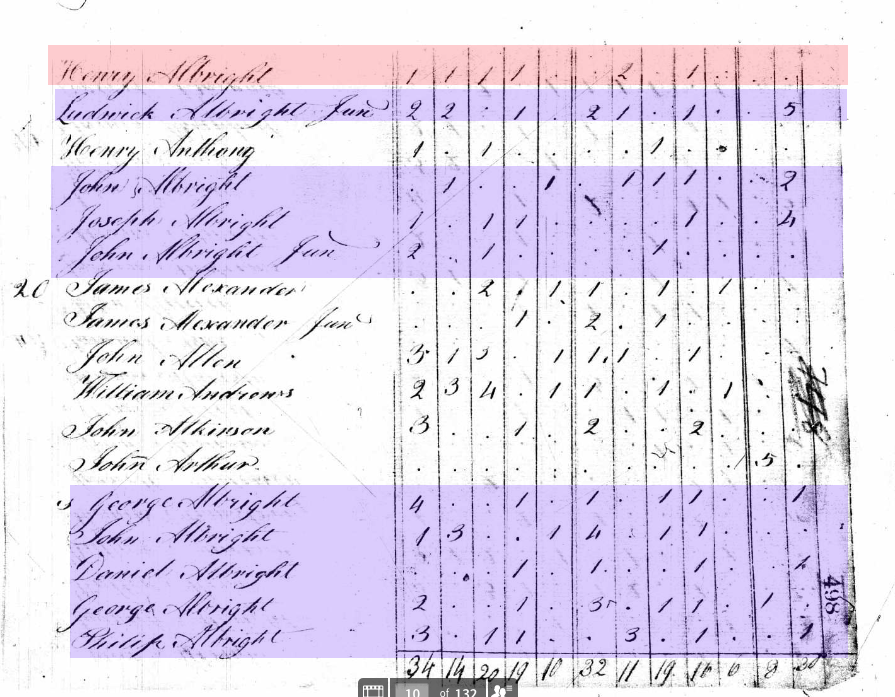 Henry Albright 1 1 1 1 . . 2 . 1 . . .
Ludwick Albright Jun 2 2 . 1 . 2 1 . 1 . . 5
Henry Anthony 1 . 1 . . . . 1 . . . .
John Albright . 1 . . 1 . 1 1 1 . . 2
Joseph Albright 1 . 1 1 . . . . 1 . . 4
John Albright Jun 2 . 1 . . . . 1 . . . .
20 James Alexander . . 2 . 1 1 . 1 . 1 . .
James Alexander Jun . . . 1 . 2 . 1 . . . .
John Allen 3 1 . 1 1 1 . 1 . . .
William Andrews 2 3 4 . 1 1 . 1 . 1 . .
John Atkinson 3 . . 1 . 2 . . 2 . . .
John Arthur . . . . . . . . . 5 .
George Albright 4 . . 1 . 1 . 1 1 . . 1
John Albright 1 3 . . 1 4 . 1 1 . . .
Daniel Albright . . . 1 . 1 . . 1 . .
George Albright 2 . . 1 . 3 . 1 1 . 1 .
Philip Albright 3 . 1 1 . . 3 . 1 . . 1
34 14 20 19 10 32 11 19 16 6 8
498
10 of 132